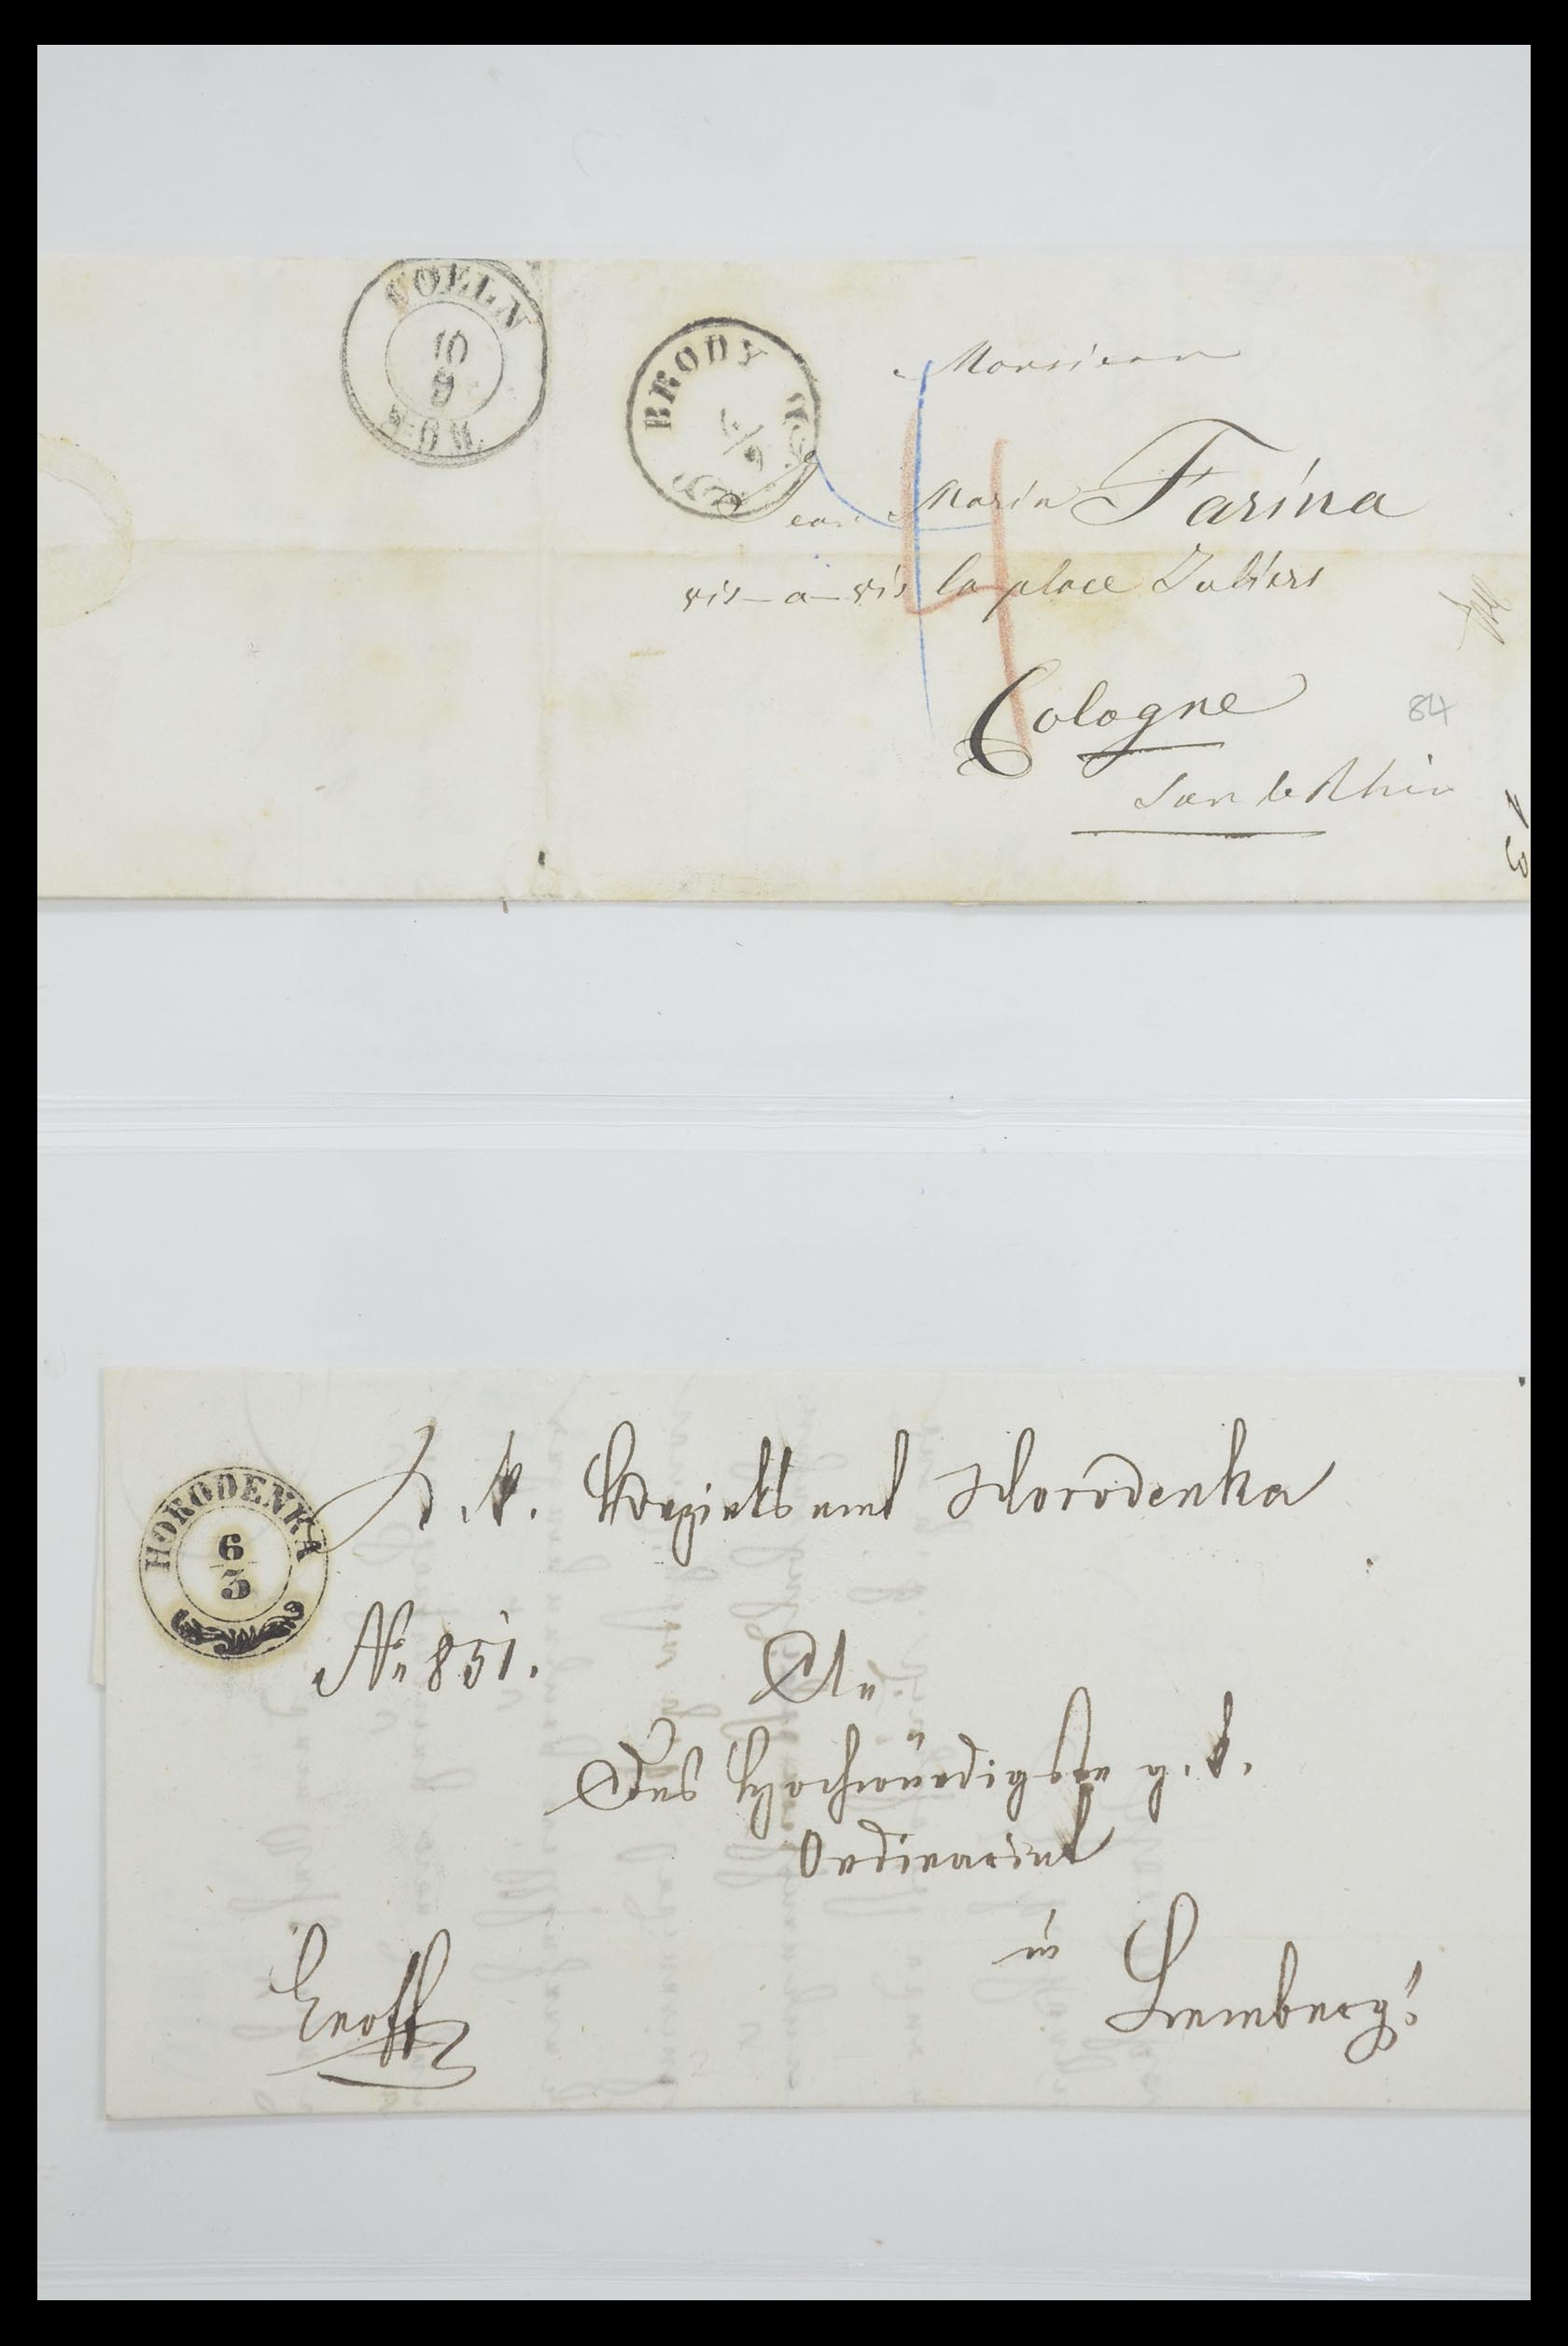 COELN
10
9
BRODY
Monsieur
Jean Maria Farina
vis-a-vis la place Juliers
Cologne
84
Sur le Rhin
13
K. K. Bezirksamt Horodenka
HORODENKA
6
3
No 851.
An
Das Hochwürdigste g. k.
Ordinariat
in
Lemberg!